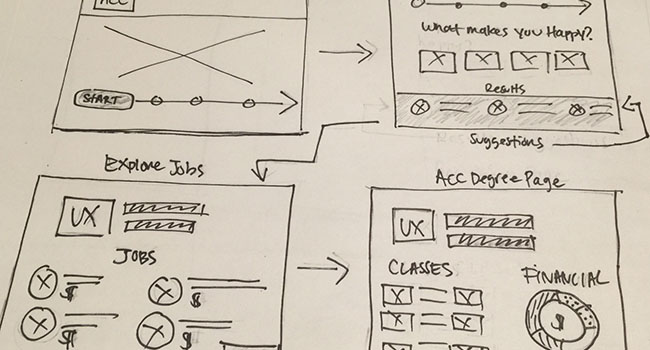 ACC
START
What makes you Happy?
Results
Suggestions
Explore Jobs
UX
JOBS
$ $
$ $
ACC Degree Page
UX
CLASSES
FINANCIAL
$